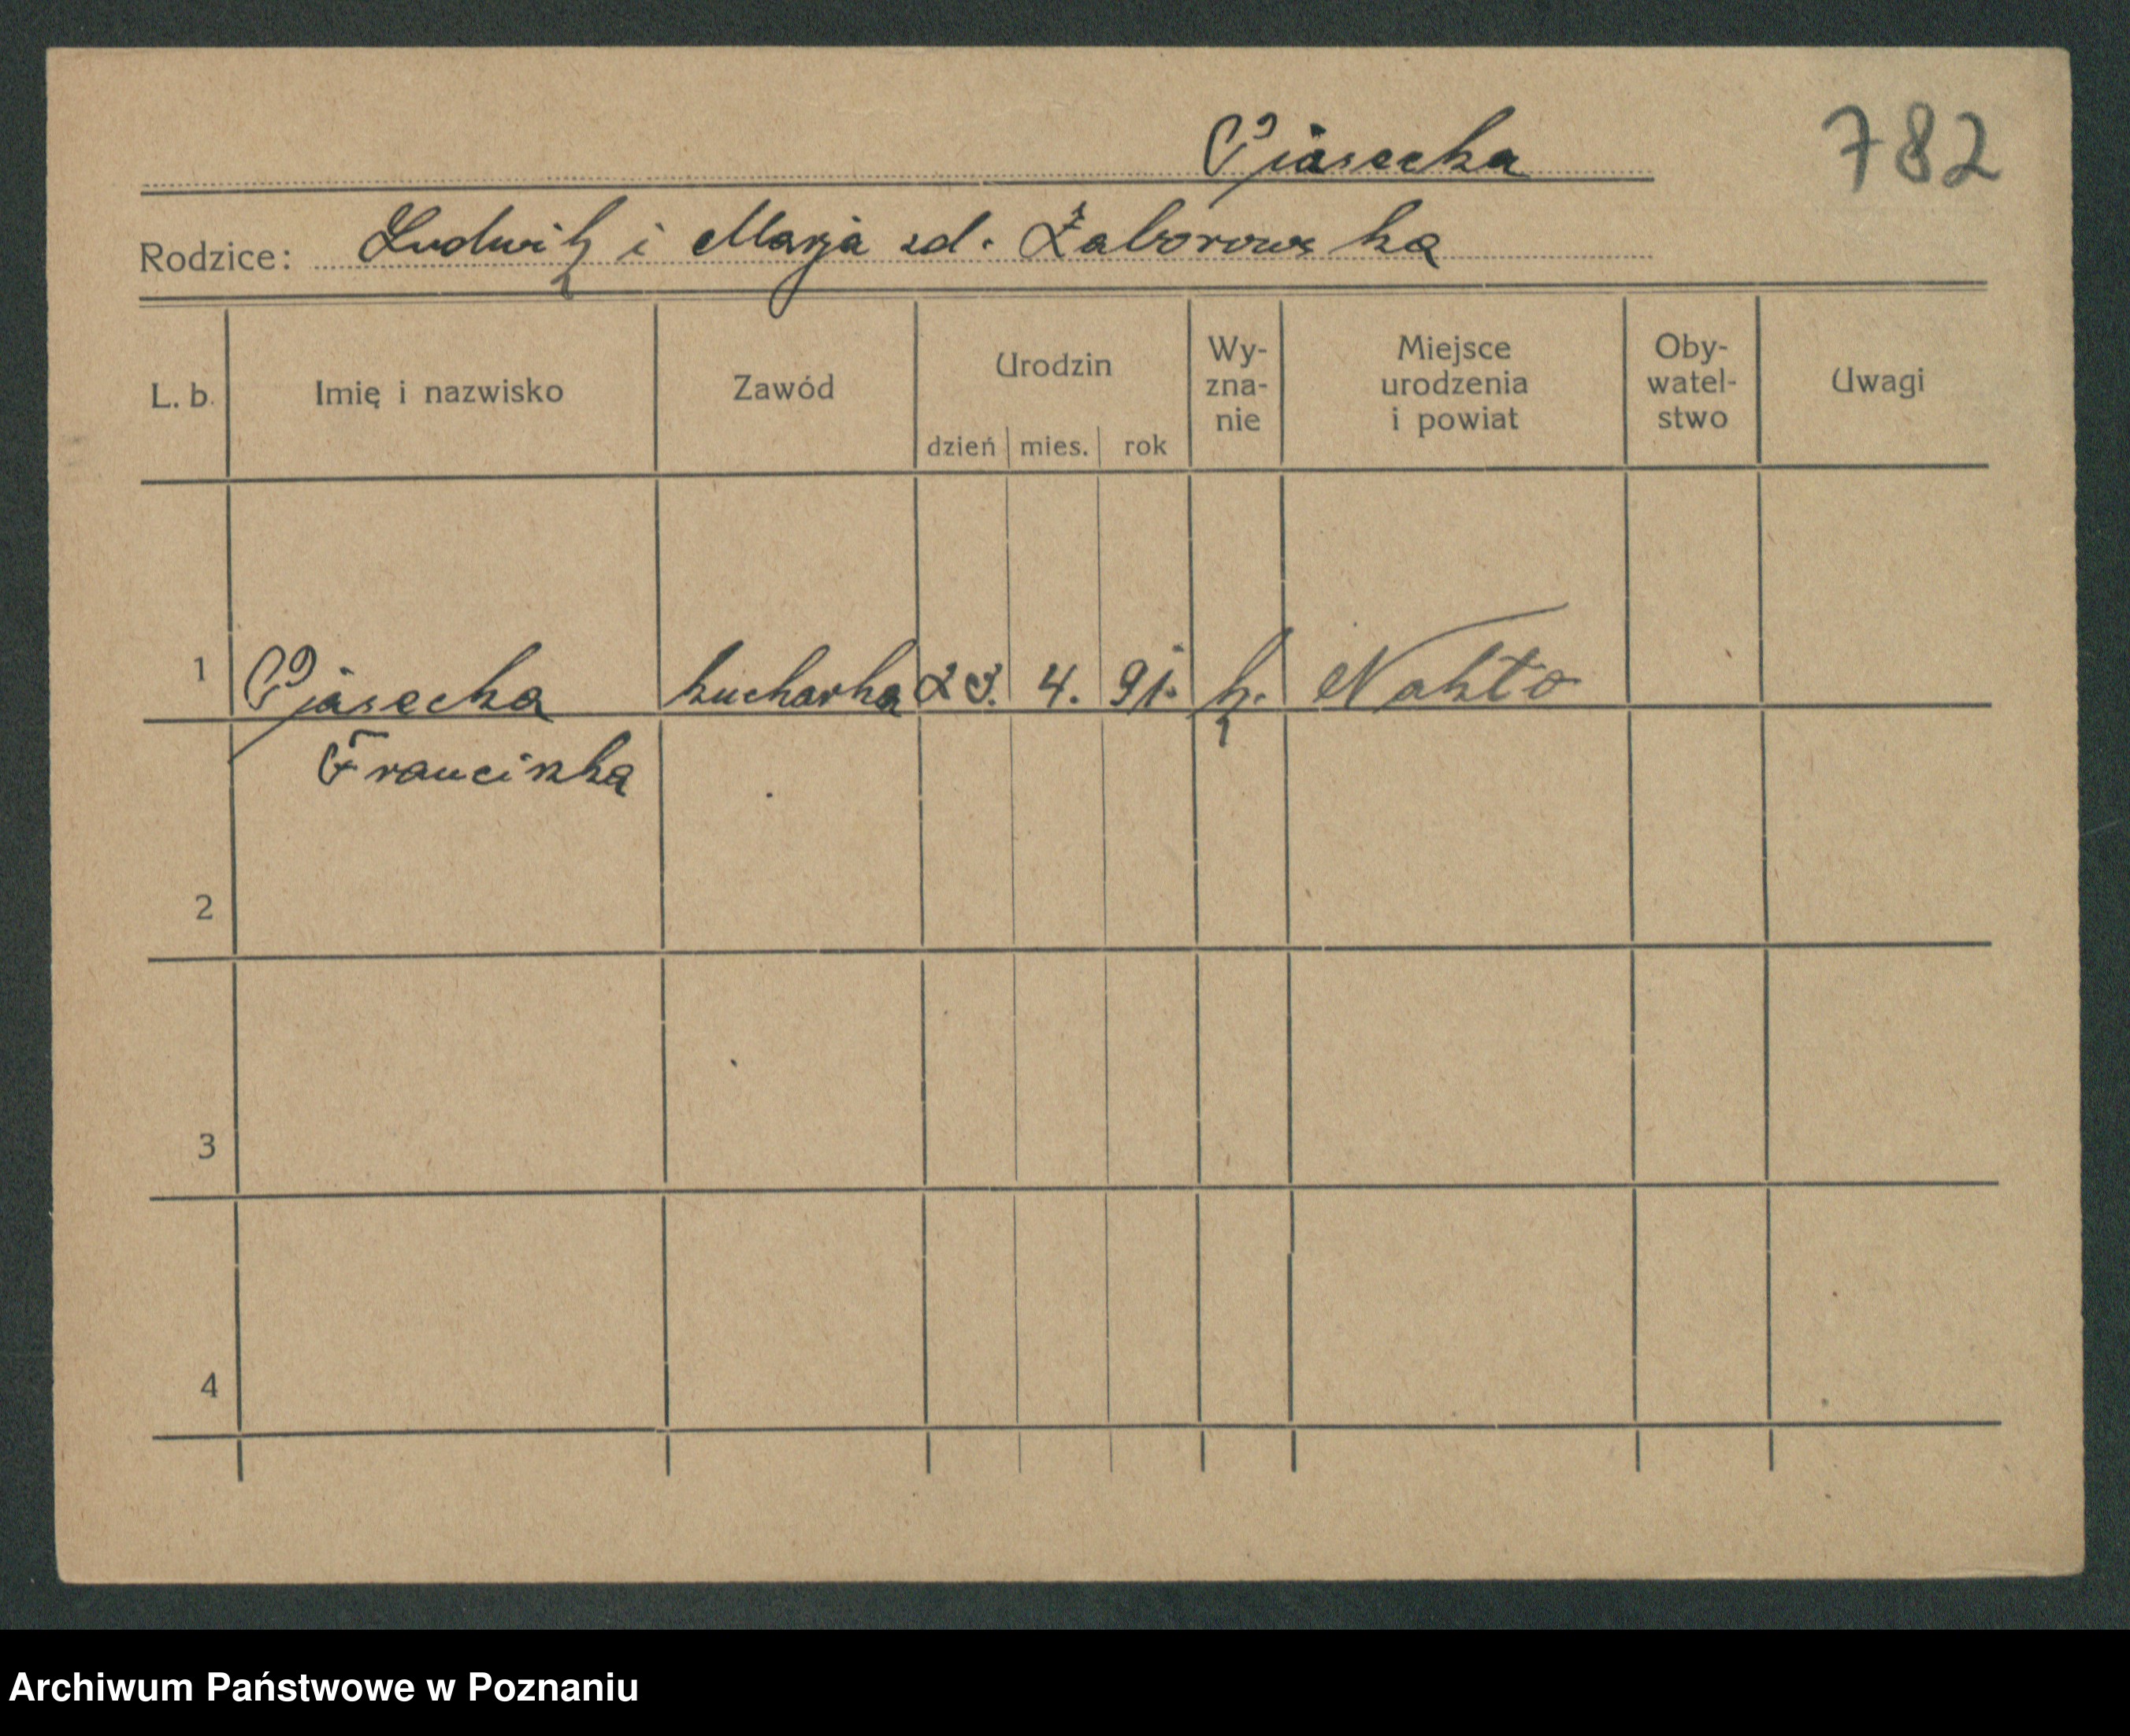 Piasecka
782
Rodzice: Ludwik i Marja zd. Zaborowska
L. b. Imię i nazwisko Zawód Urodzin dzień mies. rok Wy-zna-nie Miejsce urodzenia i powiat Oby-watel-stwo Uwagi
1 Piasecka kucharka 23. 4. 91. k. Nakło
Franciszka
2
3
4
Archiwum Państwowe w Poznaniu